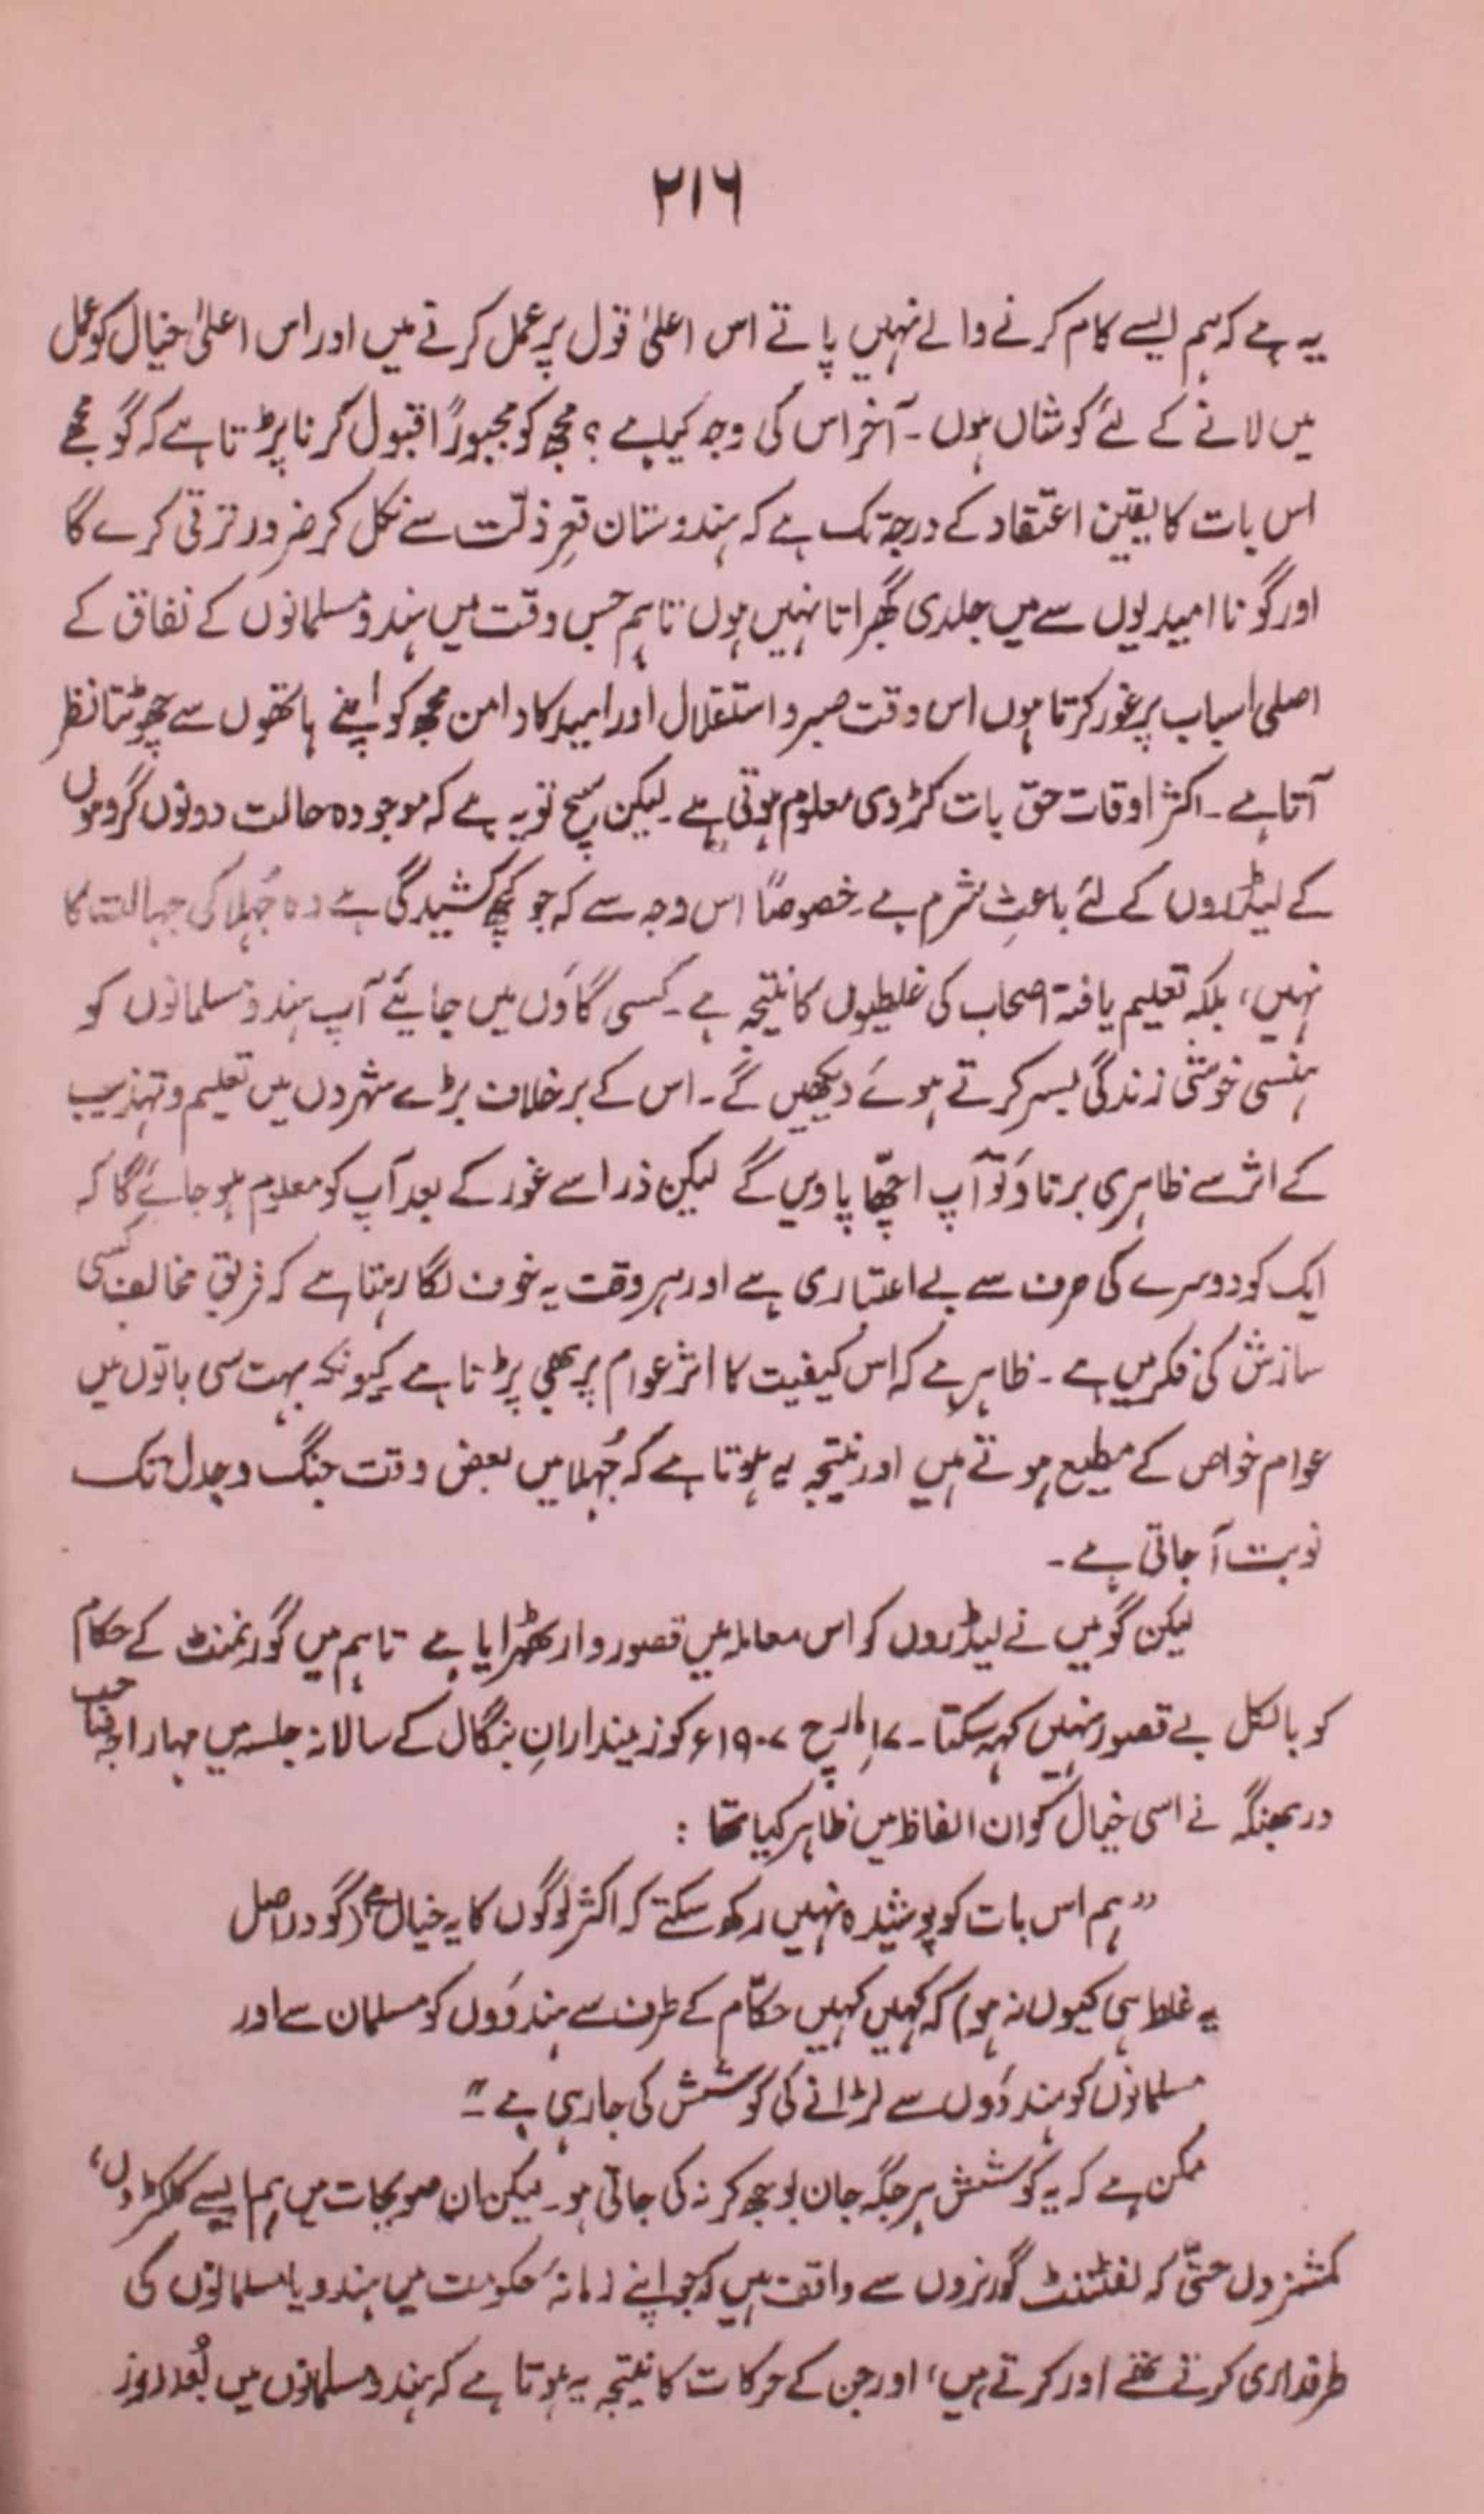 ۲۱۶
یہ ہے کہ ہم ایسے کام کرنے والے نہیں پاتے اس اعلیٰ قول پر عمل کرتے ہیں اور اس اعلیٰ خیال کو عمل
میں لانے کے لئے کوشاں ہوں ۔ آخر اس کی وجہ کیا ہے ؟ مجھ کو مجبوراً قبول کرنا پڑتا ہے کہ گو مجھے
اس بات کا یقین اعتقاد کے درجہ تک ہے کہ ہندوستان قعرِ ذلّت سے نکل کر ضرور ترقی کرے گا
اور گو نا امیدیوں سے میں جلدی گھبراتا نہیں ہوں تاہم جس وقت میں ہندو مسلمانوں کے نفاق کے
اصلی اسباب پر غور کرتا ہوں اس وقت صبر و استقلال اور امید کا دامن مجھ کو اپنے ہاتھوں سے چھوٹتا نظر
آتا ہے ۔ اکثر اوقات حق بات کڑوی معلوم ہوتی ہے ۔ لیکن سچ تو یہ ہے کہ موجودہ حالت دونوں گروہوں
کے لیڈروں کے لئے باعثِ شرم ہے ۔ خصوصاً اس وجہ سے کہ جو کچھ کشیدگی ہے وہ جُہلا کی جہالت کا
نہیں، بلکہ تعلیم یافتہ اصحاب کی غلطیوں کا نتیجہ ہے ۔ کسی گاؤں میں جائیے آپ ہندو مسلمانوں کو
ہنسی خوشی زندگی بسر کرتے ہوئے دیکھیں گے ۔ اس کے برخلاف بڑے شہروں میں تعلیم و تہذیب
کے اثر سے ظاہری برتاؤ تو آپ اچھّا پاویں گے لیکن ذرا سے غور کے بعد آپ کو معلوم ہو جائے گا کہ
ایک کو دوسرے کی طرف سے بے اعتباری ہے اور ہر وقت یہ خوف لگا رہتا ہے کہ فریقِ مخالف کسی
سازش کی فکر میں ہے ۔ ظاہر ہے کہ اس کیفیت کا اثر عوام پر بھی پڑتا ہے کیونکہ بہت سی باتوں میں
عوام خواص کے مطیع ہوتے ہیں اور نتیجہ یہ ہوتا ہے کہ جُہلا میں بعض وقت جنگ و جدل تک
نوبت آ جاتی ہے ۔
لیکن گو میں نے لیڈروں کو اس معاملہ میں قصوروار ٹھہرایا ہے تاہم میں گورنمنٹ کے حکام
کو بالکل بے قصور نہیں کہہ سکتا ۔ ۱۷ مارچ ۱۹۰۷ء کو زمیندارانِ بنگال کے سالانہ جلسہ میں مہاراجہ صاحب
دربھنگہ نے اسی خیال کو ان الفاظ میں ظاہر کیا تھا :
”ہم اس بات کو پوشیدہ نہیں رکھ سکتے کہ اکثر لوگوں کا یہ خیال ہے (گو دراصل
یہ غلط ہی کیوں نہ ہو) کہ کہیں کہیں حکّام کے طرف سے ہندوؤں کو مسلمان سے اور
مسلمانوں کو ہندوؤں سے لڑانے کی کوشش کی جا رہی ہے ۔“
ممکن ہے کہ یہ کوشش ہر جگہ جان بوجھ کر نہ کی جاتی ہو ۔ لیکن ان صوبجات میں ہم ایسے کلکٹروں،
کمشنروں حتّٰی کہ لفٹننٹ گورنروں سے واقف ہیں کہ جو اپنے زمانۂ حکومت میں ہندو یا مسلمانوں کی
طرفداری کرتے تھے اور کرتے ہیں، اور جن کے حرکات کا نتیجہ یہ ہوتا ہے کہ ہندو مسلمانوں میں بُعد روز